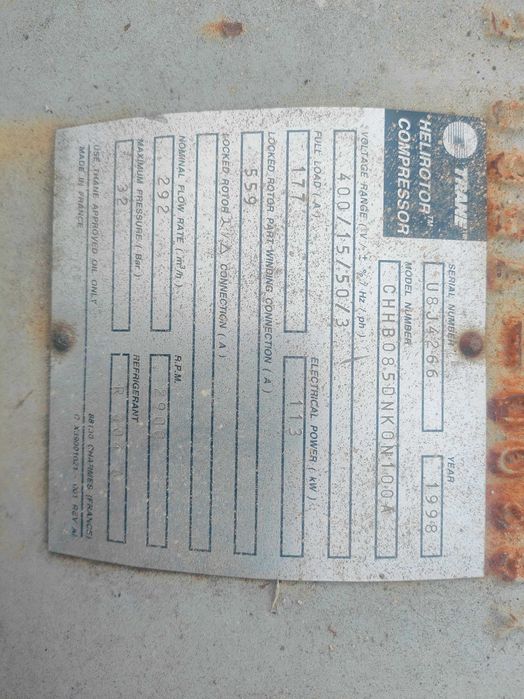 TRANE
HELIROTOR™
COMPRESSOR
SERIAL NUMBER YEAR
U8J4266 1998
MODEL NUMBER
CHHB085DNK0N100A
VOLTAGE RANGE ( V / ± %/ Hz / ph )
400/15/50/3
FULL LOAD ( A ) ELECTRICAL POWER ( kW )
177 113
LOCKED ROTOR PART WINDING CONNECTION ( A )
559
LOCKED ROTOR CONNECTION ( A )
NOMINAL FLOW RATE ( m³/h ) R.P.M.
292 2900
MAXIMUM PRESSURE ( Bar ) REFRIGERANT
32 R
USE TRANE APPROVED OIL ONLY 88130 CHARMES (FRANCE)
MADE IN FRANCE